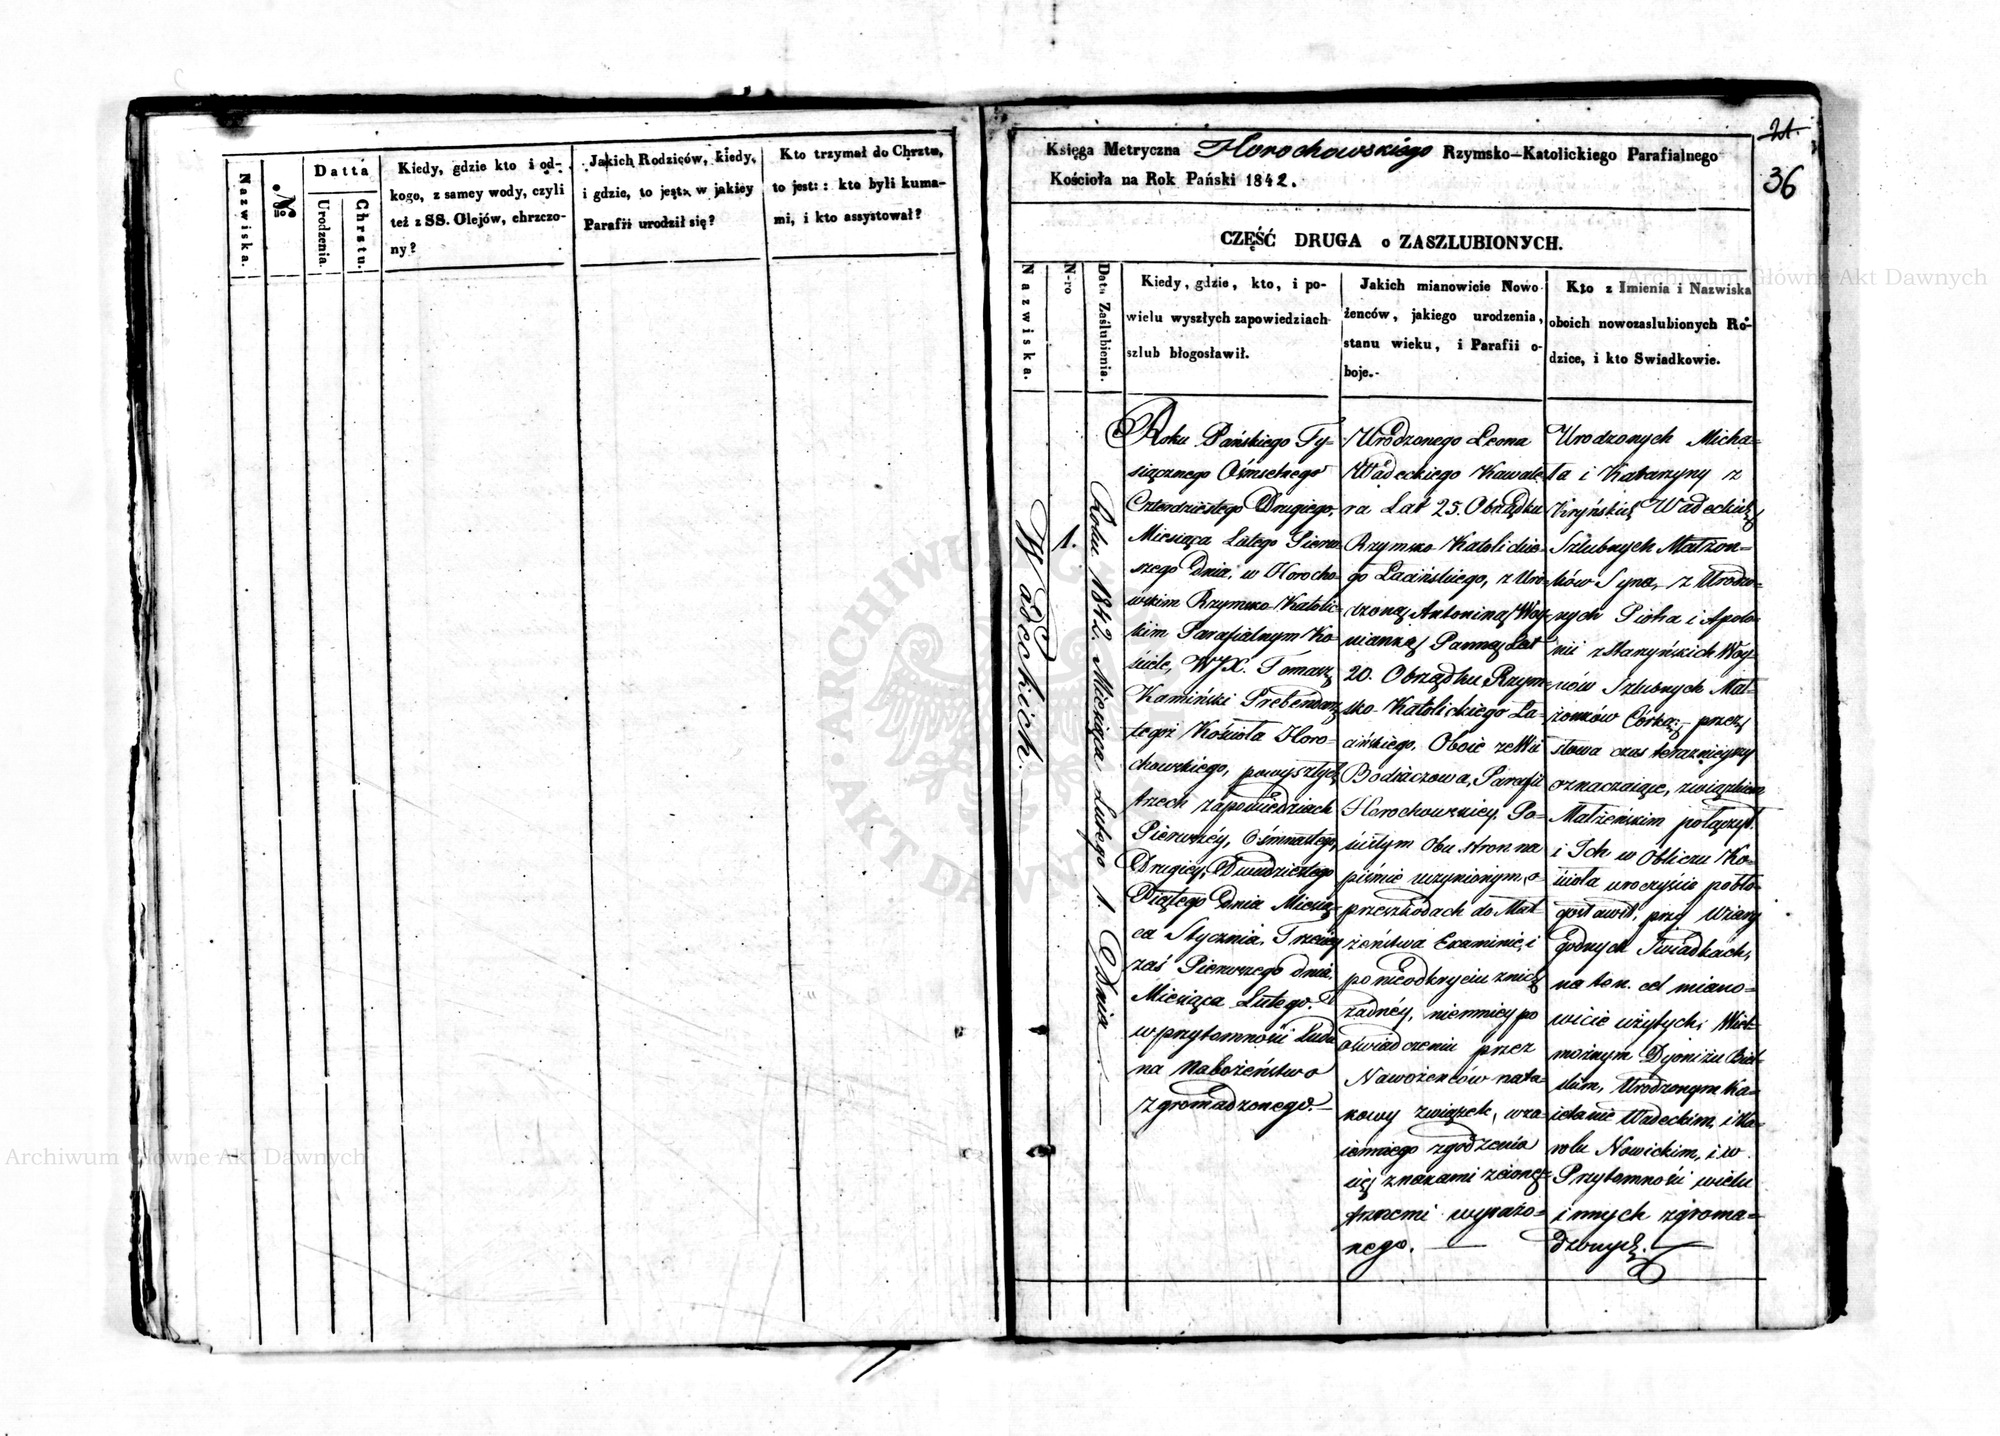 Nazwiska.
№
Datta
Urodzenia.
Chrztu.
Kiedy, gdzie kto i od-
kogo, z samey wody, czyli
też z SS. Olejów, chrzczo-
ny?
Jakich Rodziców, kiedy,
i gdzie, to jest: w jakiey
Parafii urodził się?
Kto trzymał do Chrztu,
to jest: : kto byli kuma-
mi, i kto assystował?
21.
36
Księga Metryczna Horochowskiego Rzymsko-Katolickiego Parafialnego
Kościoła na Rok Pański 1842.
CZĘŚĆ DRUGA o ZASZLUBIONYCH.
Nazwiska.
N-ro
Data Zaślubienia.
Kiedy, gdzie, kto, i po-
wielu wyszłych zapowiedziach
szlub błogosławił.
Jakich mianowicie Nowo-
żenców, jakiego urodzenia,
stanu wieku, i Parafii o-
boje.-
Kto z Imienia i Nazwiska
oboich nowozaslubionych Ro-
dzice, i kto Swiadkowie.
Wadeckich.
1.
Roku 1842 Miesiąca Lutego 1. Dnia
Roku Pańskiego Ty-
siącznego Ośmsetnego
Czterdziestego Drugiego,
Miesiąca Lutego Pierw-
szego Dnia, w Horocho-
wskim Rzymsko Katolic-
kim Parafialnym Ko-
ściele, WJX. Tomasz
Kamiński Prebendarz
tegoż Kościoła Horo-
chowskiego, powyszłych
trzech zapowiedziach
Pierwszéy, Ośmnastego,
Drugiey, Dwudziestego
Piątego Dnia Miesią-
ca Stycznia, Trzeciey
zaś Pierwszego dnia,
Miesiąca Lutego.
w przytomności Ludu
na Nabożeństwo
zgromadzonego.
Urodzonego Leona
Wadeckiego Kawale-
ra Lat 25. Obrządku
Rzymsko Katolickie-
go Łacińskiego, z Uro-
dzoną Antoniną Woy-
nianką Panną Lat
20. Obrządku Rzym-
sko-Katolickiego Ła-
cińskiego, Oboie ze Wsi
Parafii
Horochowskiey, Po-
ścisłym Obu stron na
piśmie uczynionym, o
przeszkodach do Mał
żeństwa Examinie, i
po nieodkryciu znich
żadnéy, niemniey po
oświadczeniu przez
Nowożenców nata-
kowy związek, wza-
iemnego zgodzenia
się znakami zewnę-
trznemi wyrażo-
nego.
Urodzonych Micha-
ła i Katarzyny z
Kryńskich Wadeckich
Szlubnych Małżon-
ków Syna, z Urodzo-
nych Piotra i Apolo-
nii z Staryńskich Woy-
nów Szlubnych Mał-
żonków Córką; przez
słowa czas teraznieyszy
oznaczaiące, związkiem
Małżeńskim połączył.
i Ich w Obliczu Ko-
ścioła uroczyście pobło-
gosławił, przy Wiary
godnych Świadkach,
na ten cel miano-
wicie użytych; Wiel-
możnym Dyonizu Biel-
skim, Urodzonym Ka-
ietanie Wadeckim, i Ka-
rolu Nowickim, i w
Przytomności wielu
innych zgroma-
dzonych.
Archiwum Główne Akt Dawnych
Archiwum Główne Akt Dawnych
ARCHIWUM GŁÓWNE AKT DAWNYCH